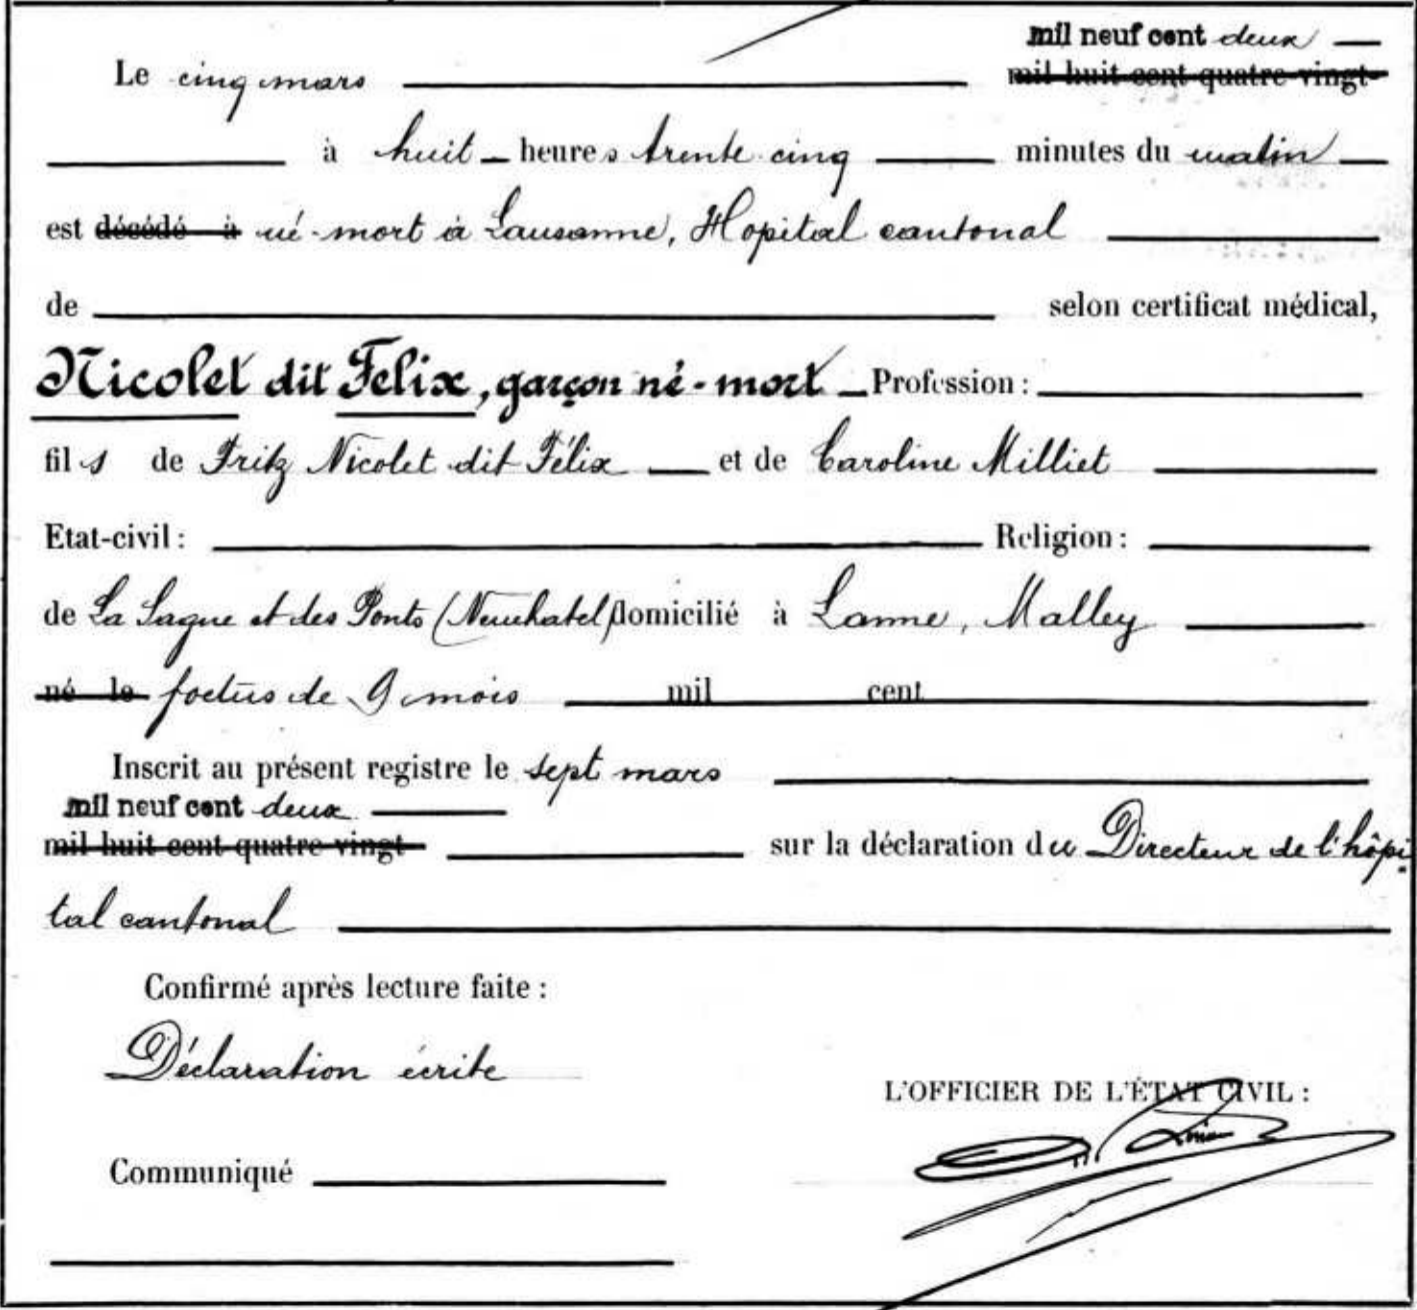 mil neuf cent deux
Le cinq mars mil huit cent quatre-vingt-
à huit heures trente cinq minutes du matin
est décédé à né-mort à Lausanne, Hopital cantonal
de selon certificat médical,
Nicolet dit Felix, garçon né-mort Profession :
fils de Fritz Nicolet dit Félix et de Caroline Milliet
Etat-civil : Religion :
de La Sagne et des Ponts (Neuchatel) domicilié à Lanne, Malley
né le foetus de 9 mois mil cent
Inscrit au présent registre le sept mars
mil neuf cent deux
mil huit cent quatre-vingt- sur la déclaration du Directeur de l'hôpi-
tal cantonal
Confirmé après lecture faite :
Déclaration écrite
L'OFFICIER DE L'ÉTAT CIVIL :
Communiqué